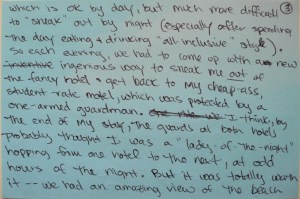 which is ok by day, but much more difficult ③
to "sneak" out by night (especially after spending
the day eating & drinking "all-inclusive" style).
So each evening, we had to come up with a new
inventive ingenious way to sneak me out of
the fancy hotel & get back to my cheap-ass,
student-rate motel, which was protected by a
one-armed guardman. I think, by
the end of my stay, the guards at both hotels
probably thought I was a "lady-of-the-night"
hopping from one hotel to the next, at odd
hours of the night. But it was totally worth
it -- we had an amazing view of the beach